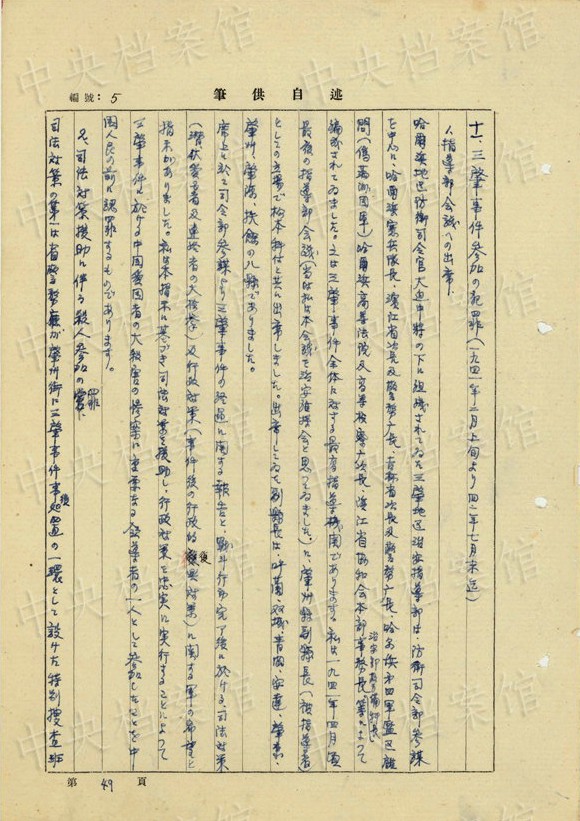 筆供自述
編號：5
十一、三肇事件参加の犯罪（一九四一年二月上旬より四二年七月末迄）
1、指導部会議への出席、
哈爾浜地区防衛司令官大迫中将の下に組織されてゐた三肇地区治安指導部は、防衛司令部参謀
を中心に、哈爾浜憲兵隊長、濱江省次長及警務庁長、吉林省次長及警務庁長、哈爾浜第四軍管区顧
問（偽満洲国軍）哈爾浜高等法院及高等検察庁次長、濱江省協和会本部事務長、等によつて
治安部
編成されてゐました。之は三肇事件全体に対する最高指導機関であります。私は一九四一年四月頃
最後の指導部会議（当時私は本会議を治安連絡会と思つてゐました。）に、肇州県副県長（被指導者）
としての立場で杉本科佐と共に出席しました。出席してゐた副県長は、呼蘭、双城、青岡、安達、肇東、
肇州、肇源、扶餘の八縣でありました。
席上に於て司令部参謀より三肇事件の経過に関する報告と、戦斗行動完了後に於ける、司法対策
（潜伏愛国者及連絡者の大検挙）及行政対策（事件後の行政的復興対策）に関する軍の希望と
指示がありました。私は本指示に基づき司法対策を援助し、行政対策を忠実に実行することによつて
三肇事件に於ける中国愛国者の大殺害の惨案に重要なる領導者の一人として参加したことを中
国人民の前に認罪するものであります。
2、司法対策援助に伴う殺人参加の罪
司法対策の第一は省警務庁が肇州街に三肇事件事後処置の一環として設けた特別捜査班
第 49 頁
中央档案馆